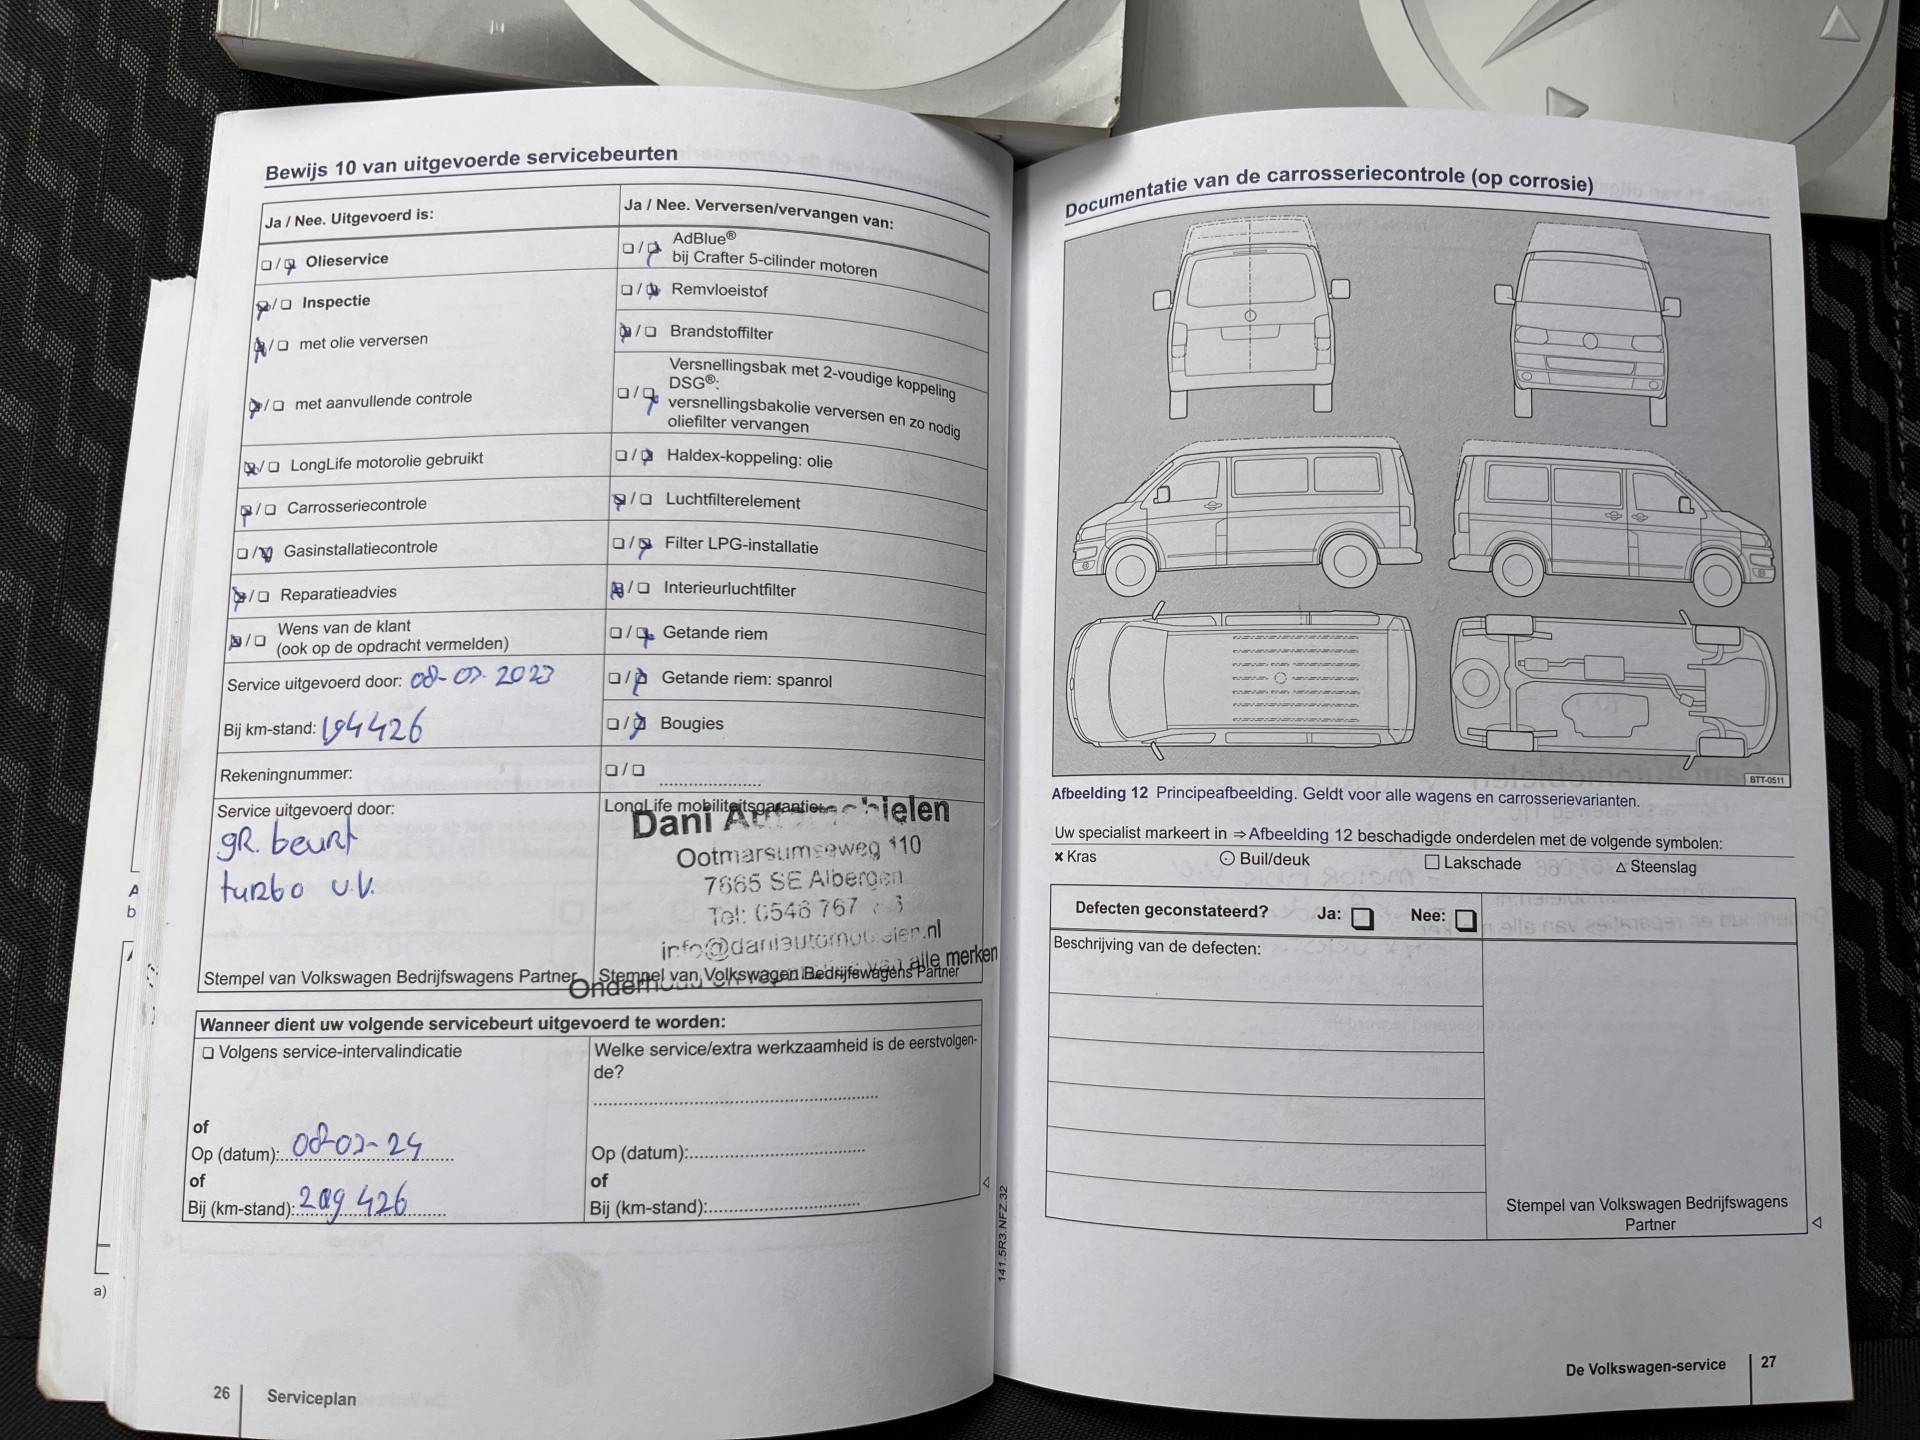 Bewijs 10 van uitgevoerde servicebeurten
Ja / Nee. Uitgevoerd is:
❏ / ❏ Olieservice
❏ / ❏ Inspectie
❏ / ❏ met olie verversen
❏ / ❏ met aanvullende controle
❏ / ❏ LongLife motorolie gebruikt
❏ / ❏ Carrosseriecontrole
❏ / ❏ Gasinstallatiecontrole
❏ / ❏ Reparatieadvies
❏ / ❏ Wens van de klant
(ook op de opdracht vermelden)
Service uitgevoerd door: 08-03-2023
Bij km-stand: 194426
Rekeningnummer:
Service uitgevoerd door:
gR. beurt
turbo u.v.
Stempel van Volkswagen Bedrijfswagens Partner
Ja / Nee. Verversen/vervangen van:
❏ / ❏ AdBlue®
bij Crafter 5-cilinder motoren
❏ / ❏ Remvloeistof
❏ / ❏ Brandstoffilter
❏ / ❏ Versnellingsbak met 2-voudige koppeling
DSG®:
versnellingsbakolie verversen en zo nodig
oliefilter vervangen
❏ / ❏ Haldex-koppeling: olie
❏ / ❏ Luchtfilterelement
❏ / ❏ Filter LPG-installatie
❏ / ❏ Interieurluchtfilter
❏ / ❏ Getande riem
❏ / ❏ Getande riem: spanrol
❏ / ❏ Bougies
❏ / ❏ ........................
LongLife mobiliteitsgarantie
Dani Automobielen
Ootmarsumseweg 110
7665 SE Albergen
Tel: 0546 767
info@daniautomobielen.nl
Onderhoud en reparaties van alle merken
Stempel van Volkswagen Bedrijfswagens Partner
Wanneer dient uw volgende servicebeurt uitgevoerd te worden:
❏ Volgens service-intervalindicatie
of
Op (datum): 08-03-24
of
Bij (km-stand): 209 426
Welke service/extra werkzaamheid is de eerstvolgen-
de?
Op (datum):
of
Bij (km-stand):
26 Serviceplan
141.5R3.NFZ.32
A
b
a)
Documentatie van de carrosseriecontrole (op corrosie)
BTT-0511
Afbeelding 12 Principeafbeelding. Geldt voor alle wagens en carrosserievarianten.
Uw specialist markeert in ⇒ Afbeelding 12 beschadigde onderdelen met de volgende symbolen:
× Kras ⊙ Buil/deuk □ Lakschade △ Steenslag
Defecten geconstateerd? Ja: ❏ Nee: ❏
Beschrijving van de defecten:
Stempel van Volkswagen Bedrijfswagens
Partner
De Volkswagen-service 27